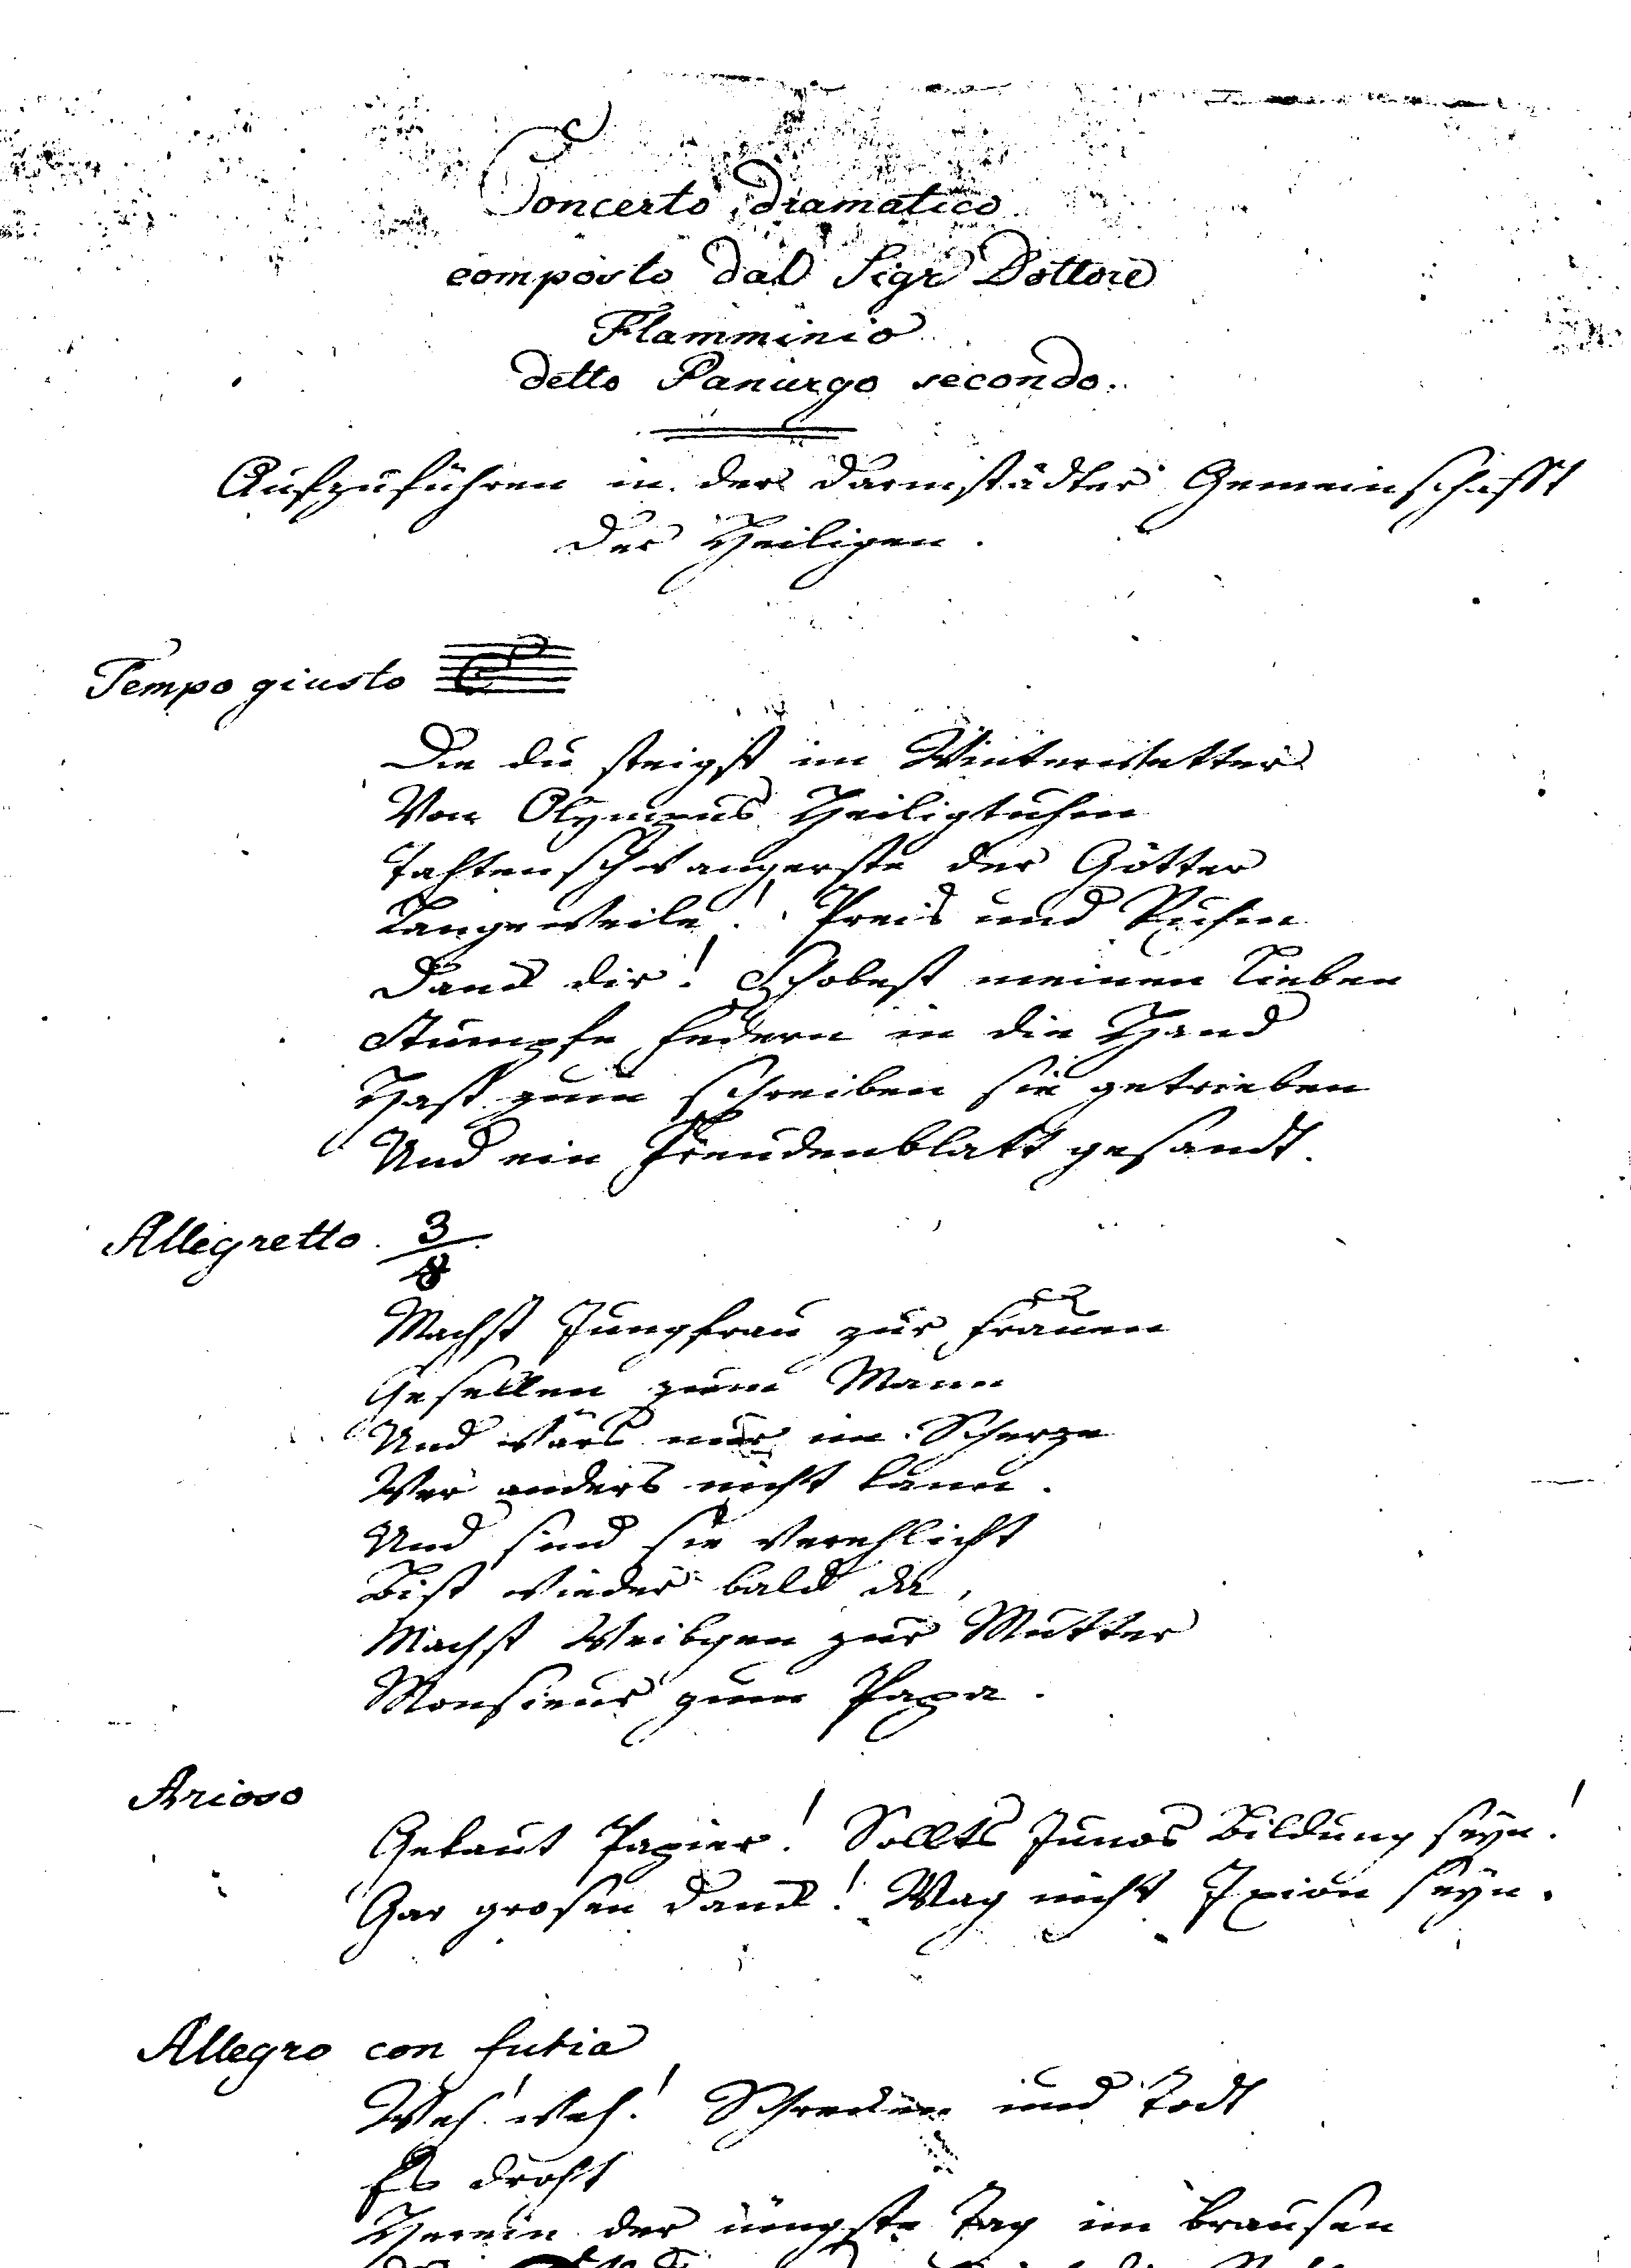 Concerto dramatico
composto dal Sigr Dottore
Flamminio
detto Panurgo secondo.
Aufzuführen in der Darmstädter Gemeinschafft
der Heiligen.
Tempo giusto C
Die du steigst im Winterwetter
Von Olympus Heiligtuhm
Tahtenschwangerste der Götter
Langeweile! Preis und Ruhm
Danck dir! Schobest meinen Lieben
Stumpfe Federn in die Hand
Hast zum schreiben sie getrieben
Und ein Freudenblatt gesandt.
Allegretto 3/8
Machst Jungfrau zur Frauen
Gesellen zum Mann
Und wärs nur im Scherze
Wer anders nicht kann.
Und sind sie verehlicht
Bist wieder bald da,
Machst Weibgen zur Mutter
Monsieur zum Papa.
Arioso
Gekaut Papier! Sollts Junos Bildung seyn!
Gar grosen Danck! Mag nicht Ixion seyn.
Allegro con furia
Weh! weh! Schrecken und Todt
Es droht
Herein der iüngste Tag im brausen